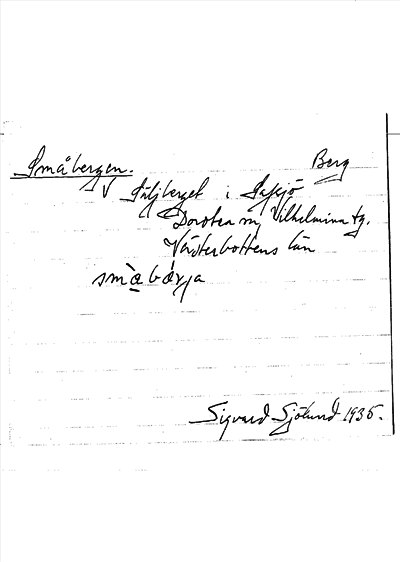 Småbergen. Berg
V Siljberget i Safsjö
Dorotea m, Vilhelmina tg.
Västerbottens län
småbärja
Sigvard Sjölund 1935.